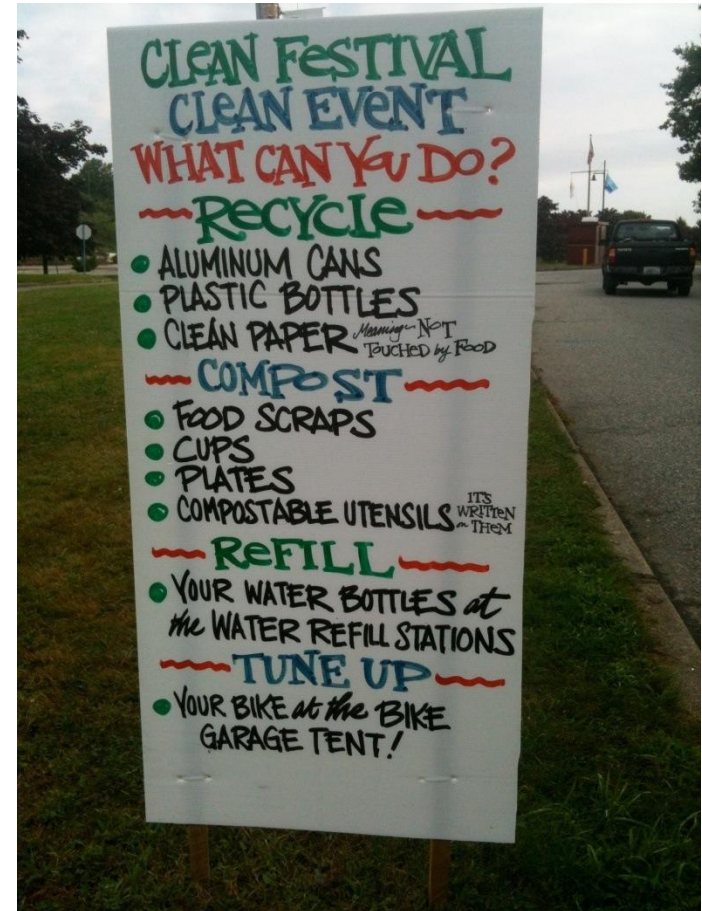 CLEAN FESTIVAL
CLEAN EVENT
WHAT CAN YOU DO?
RECYCLE
ALUMINUM CANS
PLASTIC BOTTLES
CLEAN PAPER Meaning NOT
TOUCHED by FOOD
COMPOST
FOOD SCRAPS
CUPS
PLATES
COMPOSTABLE UTENSILS IT'S
WRITTEN
on THEM
REFILL
YOUR WATER BOTTLES at
the WATER REFILL STATIONS
TUNE UP
YOUR BIKE at the BIKE
GARAGE TENT!